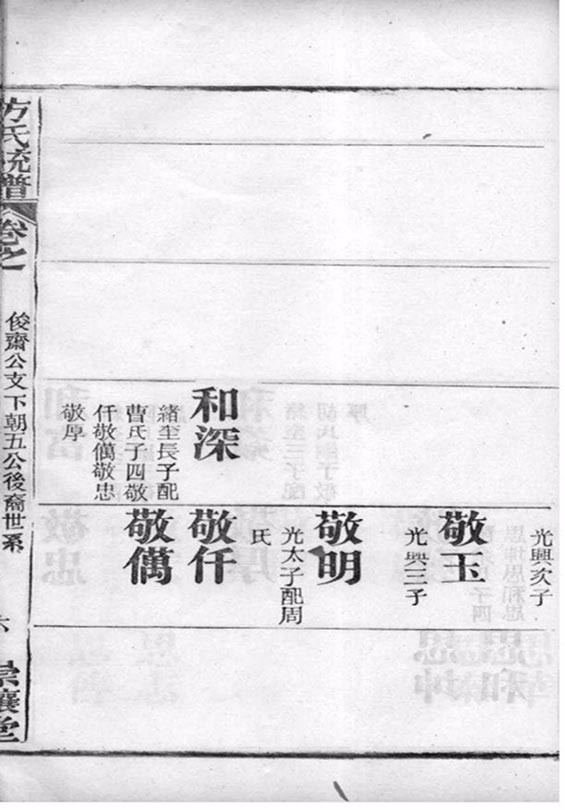 和深
緒至長子配
曹氏子四敬
仟敬㒖敬忠
敬厚
光興次子
敬玉
光興三子
敬明
光太子配周
氏
敬仟
敬㒖
方氏統譜
卷之
俊齋公文下朝五公後裔世系
六
崇讓堂